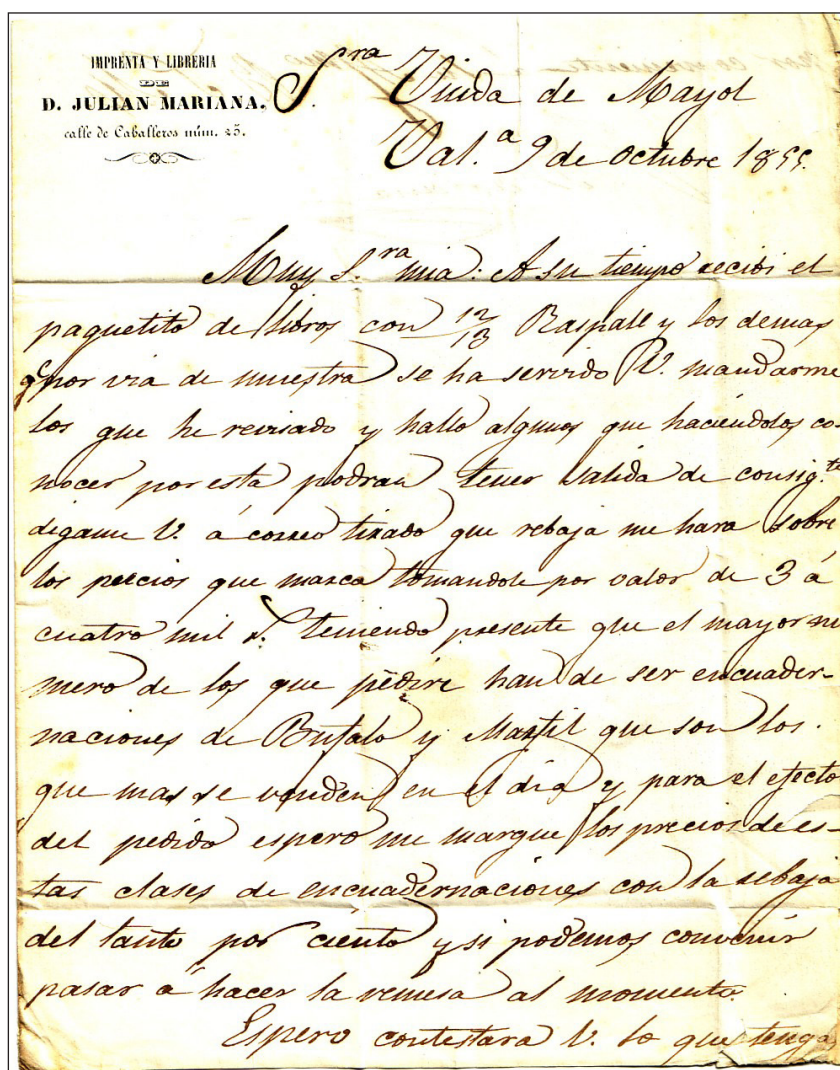 IMPRENTA Y LIBRERIA
DE
D. JULIAN MARIANA.
calle de Caballeros núm. 25.
S.ra Viuda de Mayol
Val.a 9 de octubre 1855.
Muy S.ra mia: A su tiempo recibi el
paquetito de libros con 12/13 Raspall y los demas
q por via de muestra se ha servido V. mandarme
los que he revisado y hallo algunos que haciendolos co-
nocer por esta podran tener salida de consig.te
digame V. á correo tirado que rebaja me hara sobre
los precios que marca tomandole por valor de 3 á
cuatro mil r. teniendo presente que el mayor nu
mero de los que pedire han de ser encuader-
naciones de Bufalo y Marfil que son los.
que mas se venden en el dia y para el efecto
del pedido espero me marque los precios de es-
tas clases de encuadernaciones con la rebaja
del tanto por ciento y si podemos convenir
pasar á hacer la remesa al momento.
Espero contestara V. lo que tenga